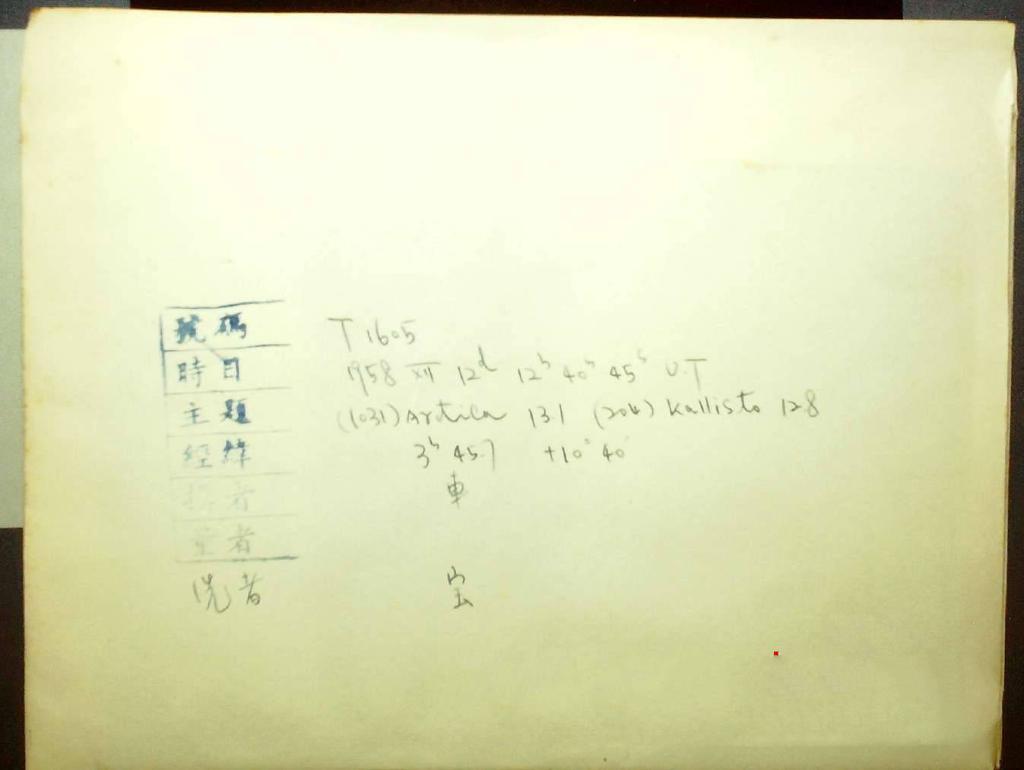 號碼 T 1605
時日 1958 XII 12d 12h 40m 45s U.T
主題 (1031) Artica 13.1 (204) Kallisto 12.8
經緯 3h 45.7 +10° 40'
攝者 車
者
洗者 宝